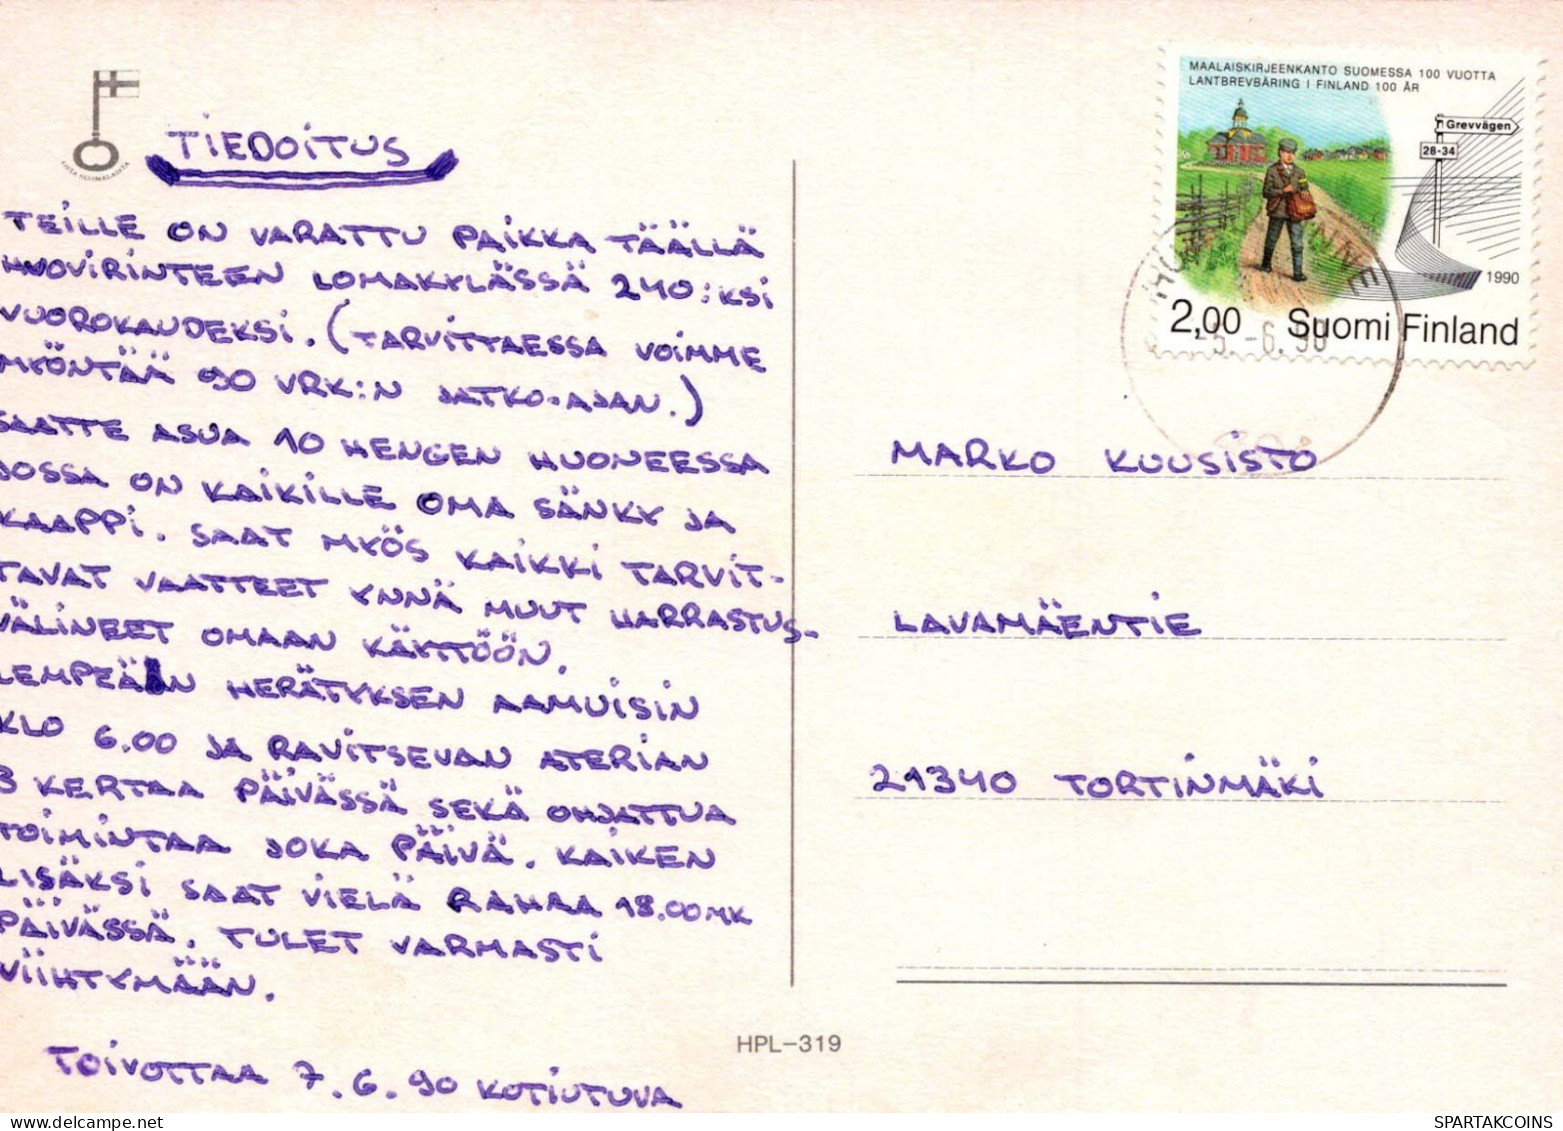 TIEDOITUS
TEILLE ON VARATTU PAIKKA TÄÄLLÄ
HUOVIRINTEEN LOMAKYLÄSSÄ 240:KSI
VUOROKAUDEKSI. (TARVITTAESSA VOIMME
MYÖNTÄÄ 90 VRK:N JATKO-AJAN.)
SAATTE ASUA 10 HENGEN HUONEESSA
JOSSA ON KAIKILLE OMA SÄNKY JA
KAAPPI. SAAT MYÖS KAIKKI TARVIT-
TAVAT VAATTEET YNNÄ MUUT HARRASTUS-
VÄLINEET OMAAN KÄYTTÖÖN.
LEMPEÄN HERÄTYKSEN AAMUISIN
KLO 6.00 JA RAVITSEVAN ATERIAN
3 KERTAA PÄIVÄSSÄ SEKÄ OHJATTUA
TOIMINTAA JOKA PÄIVÄ. KAIKEN
LISÄKSI SAAT VIELÄ RAHAA 18.00MK
PÄIVÄSSÄ. TULET VARMASTI
VIIHTYMÄÄN.
TOIVOTTAA 7.6.90 KOTIUTUVA
MAALAISKIRJEENKANTO SUOMESSA 100 VUOTTA
LANTBREVBÄRING I FINLAND 100 ÅR
Grevvägen
28-34
1990
2,00 Suomi Finland
-6.90
MARKO KUUSISTO
LAVAMÄENTIE
21340 TORTINMÄKI
HPL-319
SPARTAKCOINS